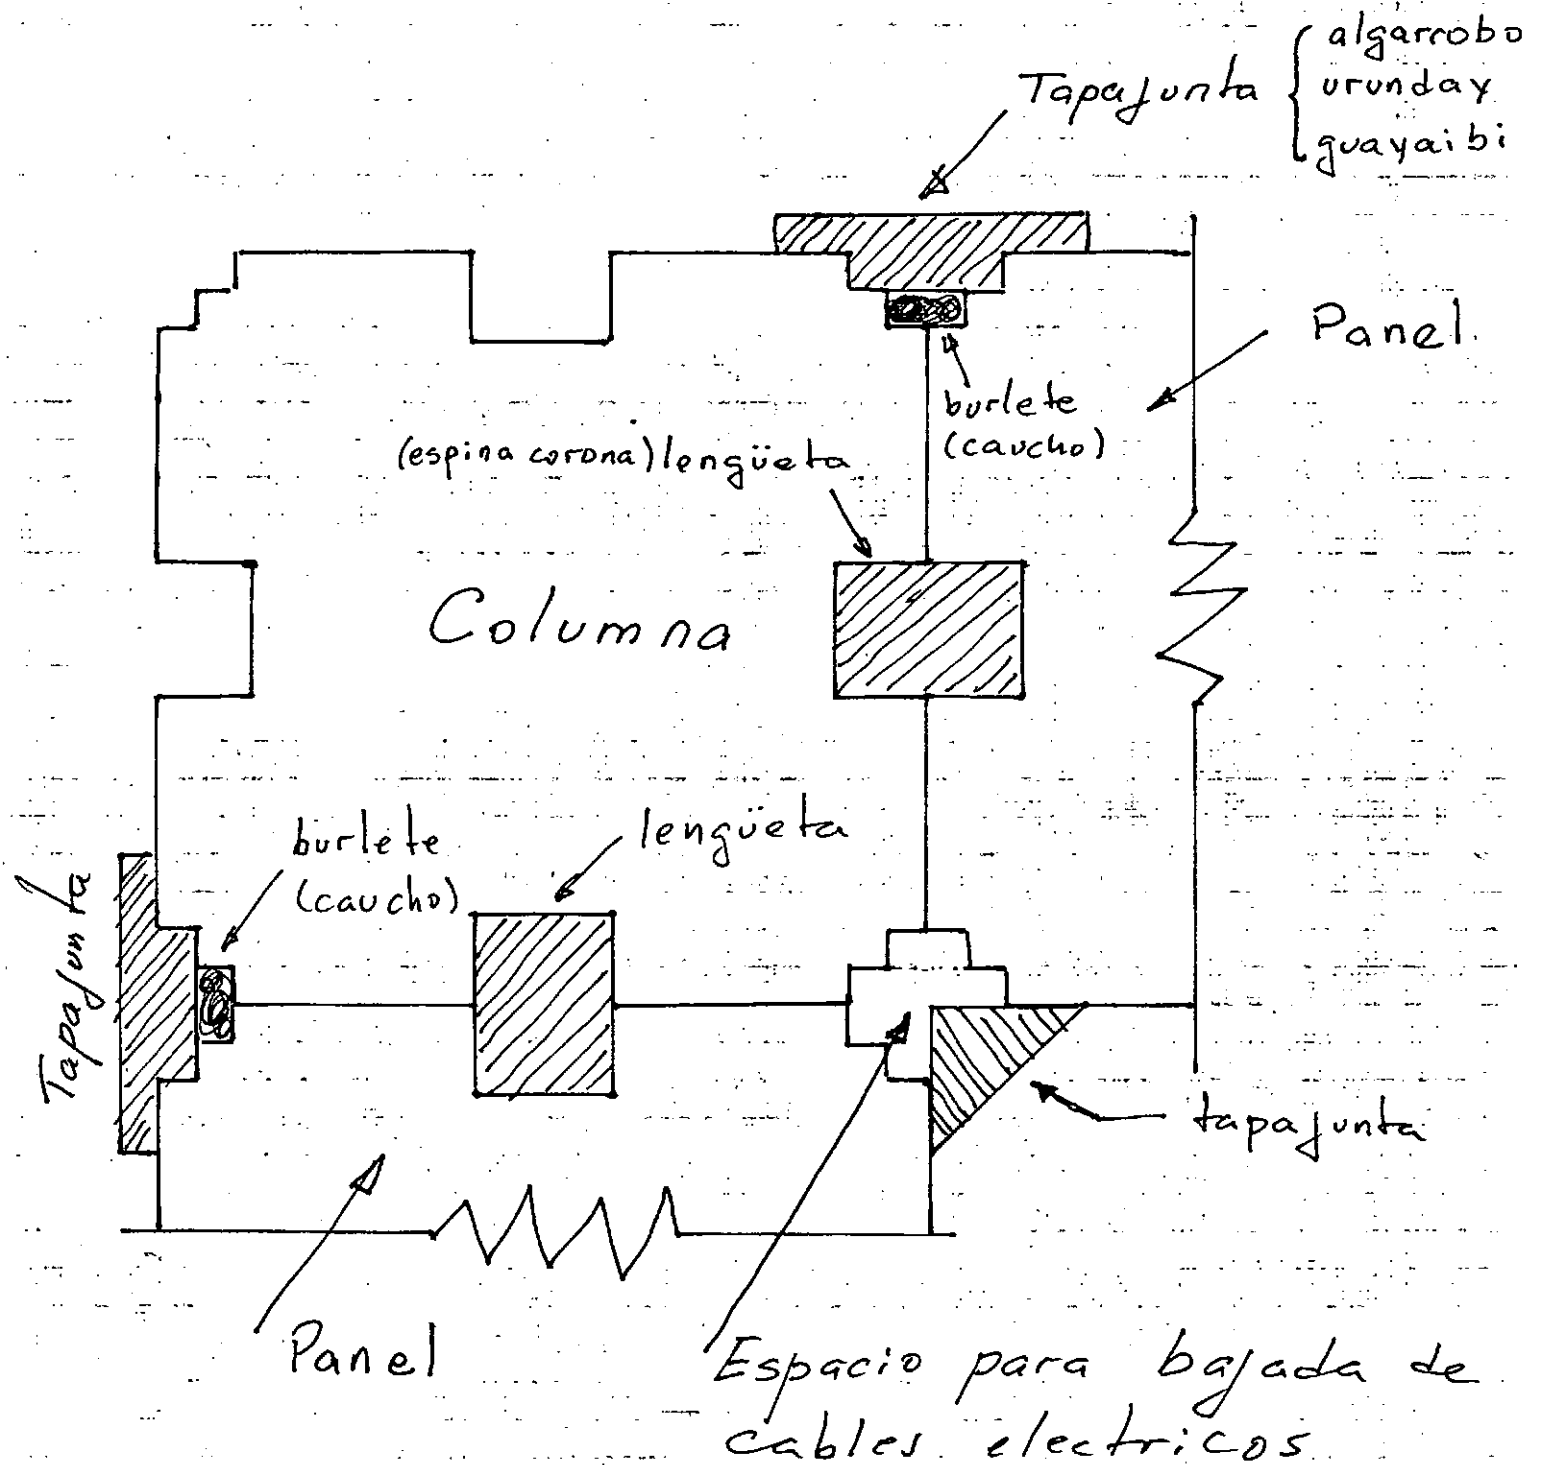 Tapajunta { algarrobo
urunday
guayaibi
Panel
burlete
(caucho)
(espina corona) lengüeta
Columna
lengüeta
burlete
(caucho)
Tapajunta
tapajunta
Panel
Espacio para bajada de
cables electricos